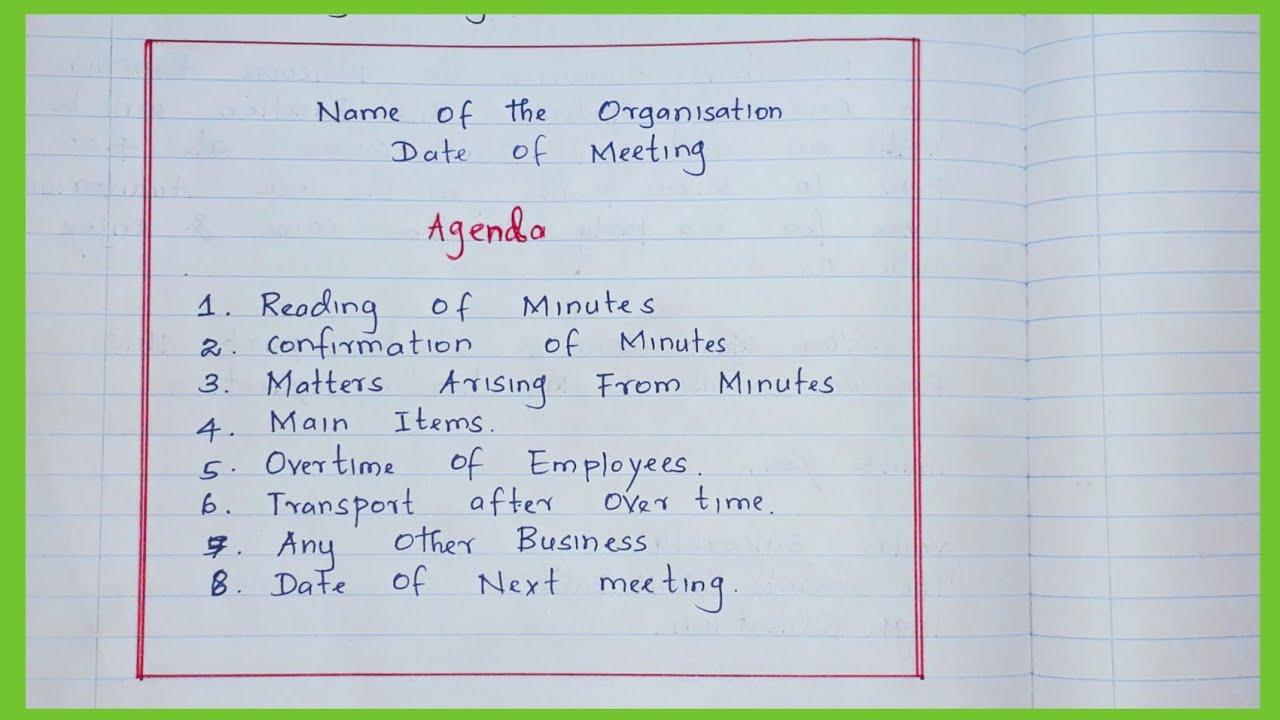 Name of the Organisation
Date of Meeting
Agenda
1. Reading of Minutes
2. Confirmation of Minutes
3. Matters Arising From Minutes
4. Main Items.
5. Overtime of Employees.
6. Transport after Over time.
7. Any other Business
8. Date of Next meeting.